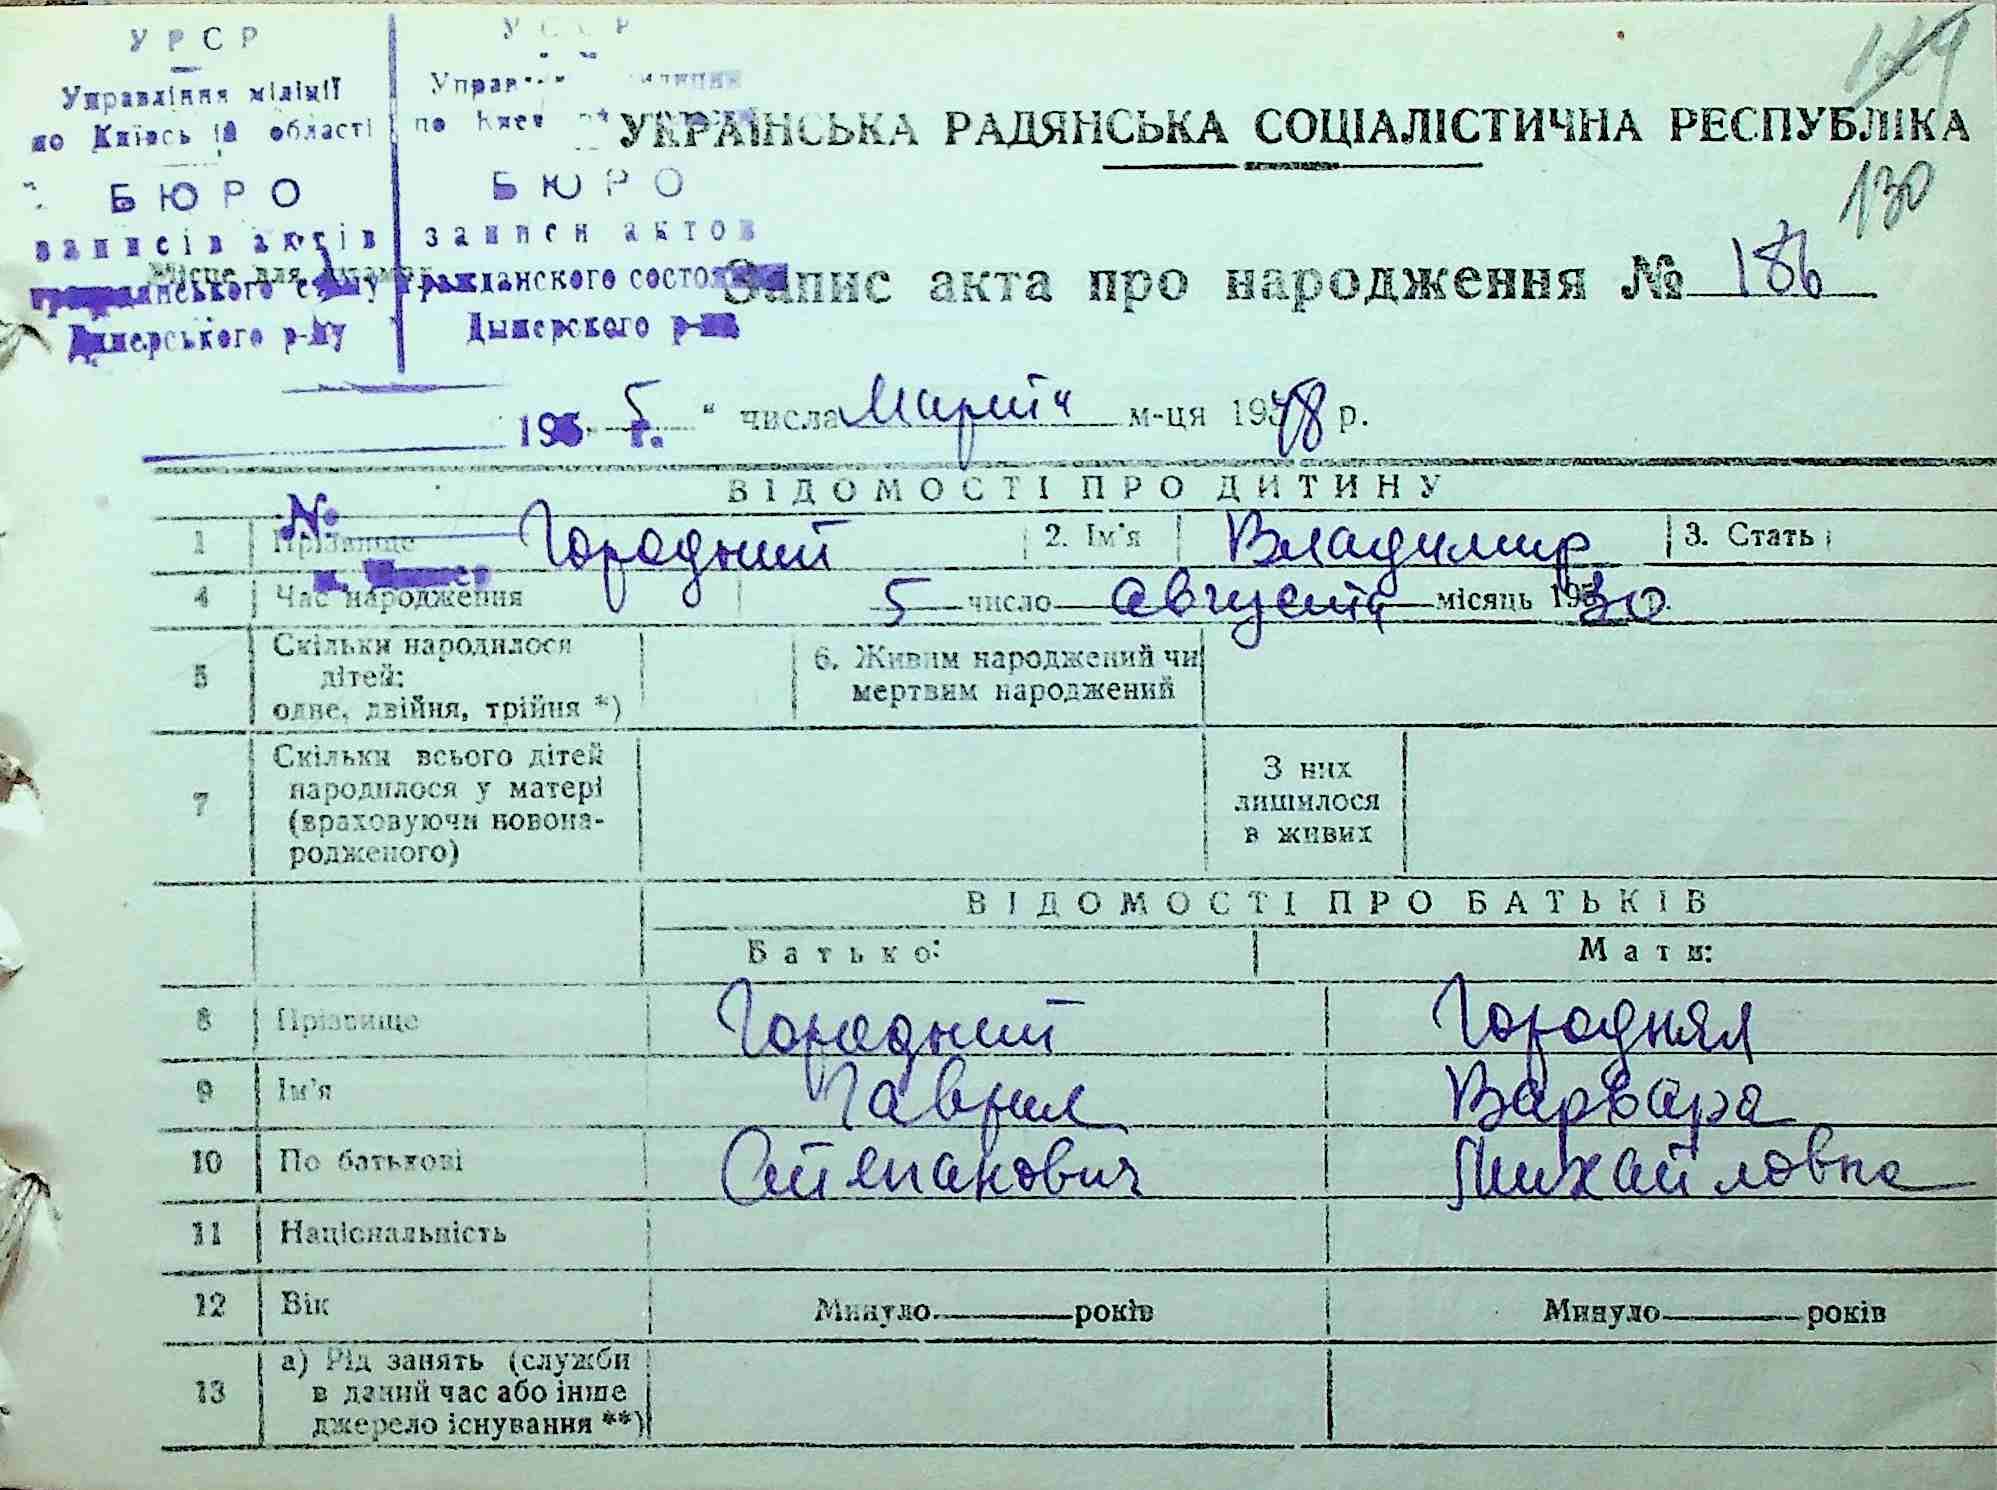 УРСР
Управління міліції
по Київській області
БЮРО
записів актів
громадянського стану
Димерського р-ну
УССР
Управ
по Киев
БЮРО
записи актов
гражданского состо
Дымерского р-на
129
УКРАЇНСЬКА РАДЯНСЬКА СОЦІАЛІСТИЧНА РЕСПУБЛІКА
130
Місце для штампу
Запис акта про народження № 186
195 г. 5 " числа Марта м-ця 1948 р.
ВІДОМОСТІ ПРО ДИТИНУ
№
1 Прізвище Городний 2. Ім'я Владимир 3. Стать
4 Час народження 5 число августа місяць 1930 р.
5 Скільки народилося дітей: одне, двійня, трійня *) 6. Живим народжений чи мертвим народжений
7 Скільки всього дітей народилося у матері (враховуючи новонародженого) З них лишилося в живих
ВІДОМОСТІ ПРО БАТЬКІВ
Батько: Мати:
8 Прізвище Городний Городняя
9 Ім'я Гаврил Варвара
10 По батькові Степанович Михайловна
11 Національність
12 Вік Минуло років Минуло років
13 а) Рід занять (служби
в даний час або інше
джерело існування **)